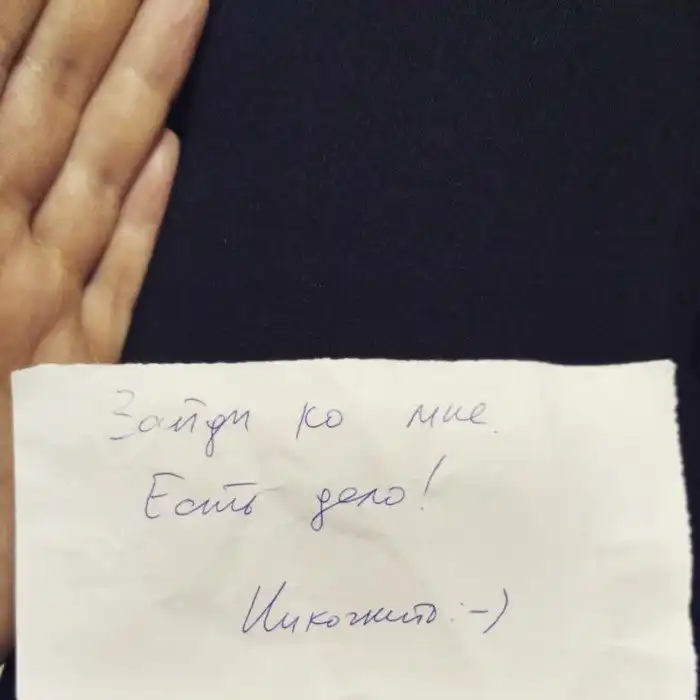 Зайди ко мне.
Есть дело!
Инкогнито :-)